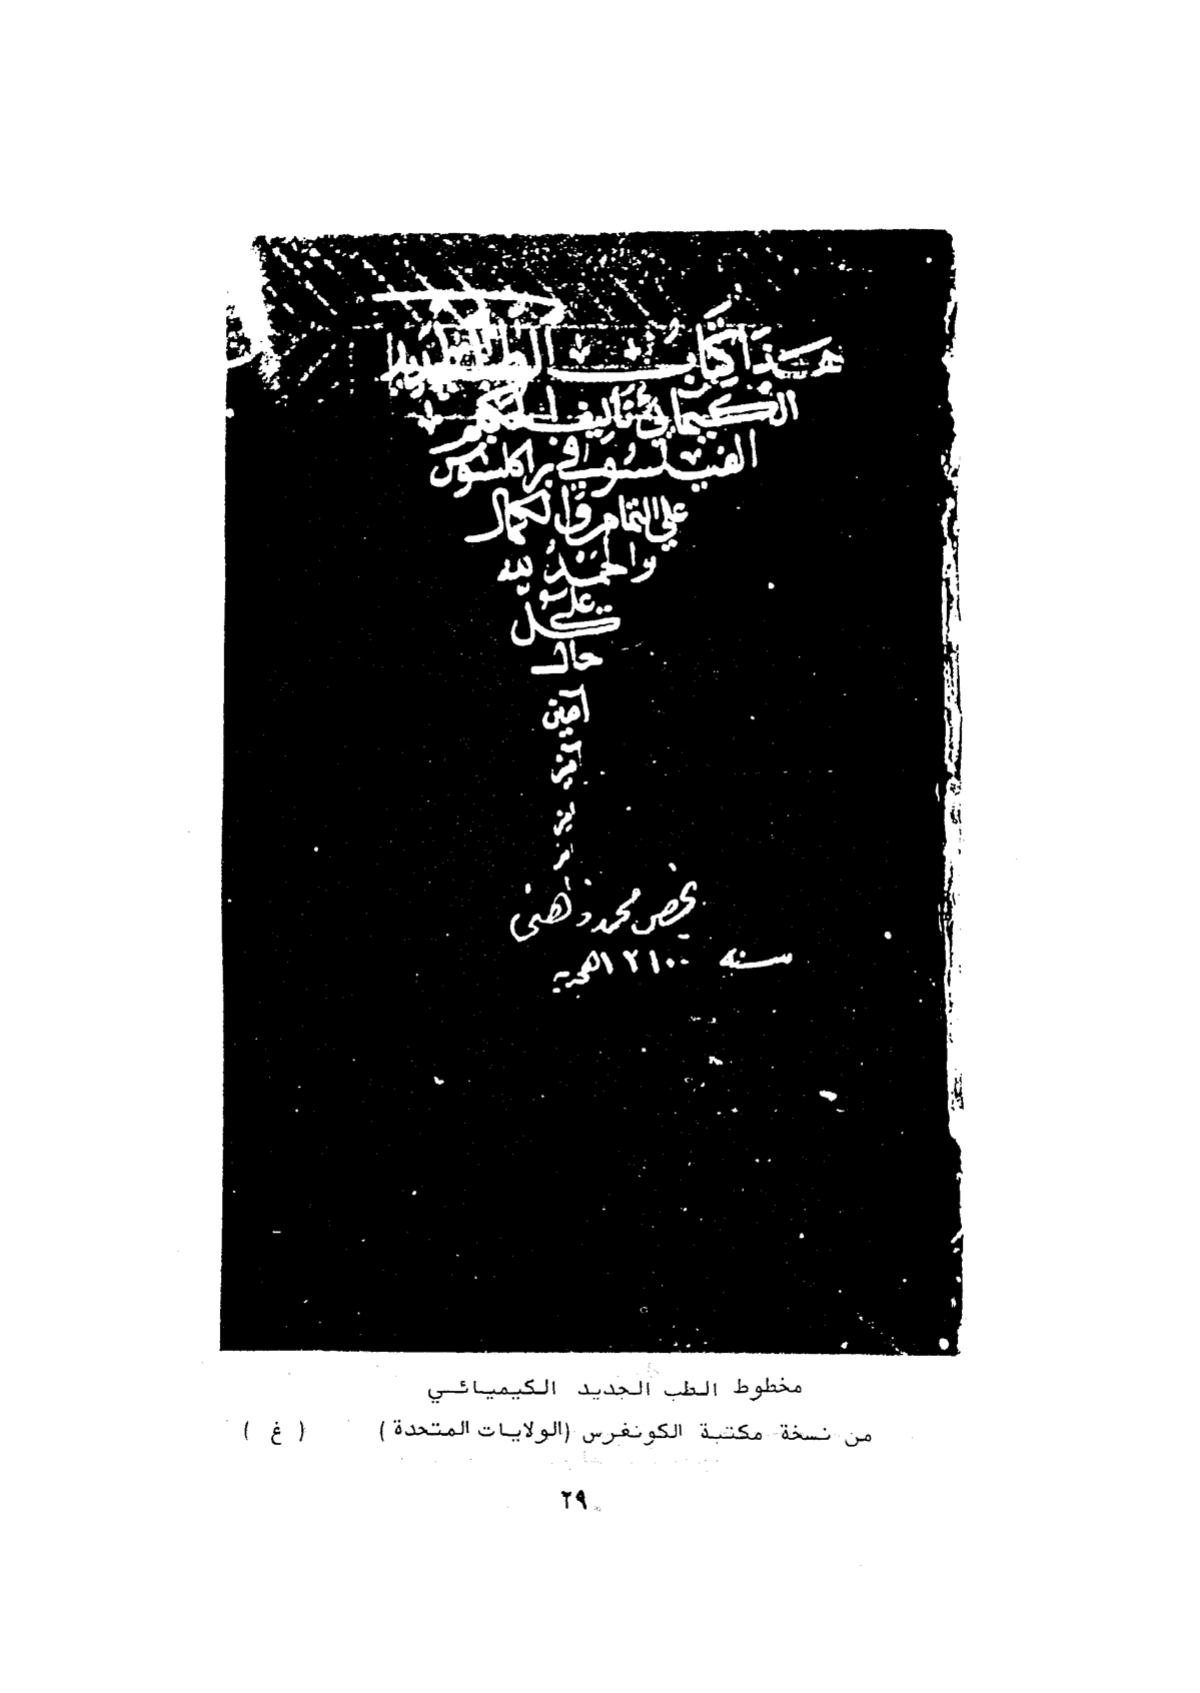 هَذَا كِتَابُ الطِّب الجديد
الكيميائي تَأليف الحكيم
الفيلسوفي براكلسوس
على التمام والكمال
والحمدُ لله
على
كلّ
حال
آمين
امين
مين
ين
يخص محمد ذهني
سنه ١٢١٠٠ هجريه
مخطوط الطب الجديد الكيميائي
من نسخة مكتبة الكونغرس (الولايات المتحدة) ( غ )
٢٩